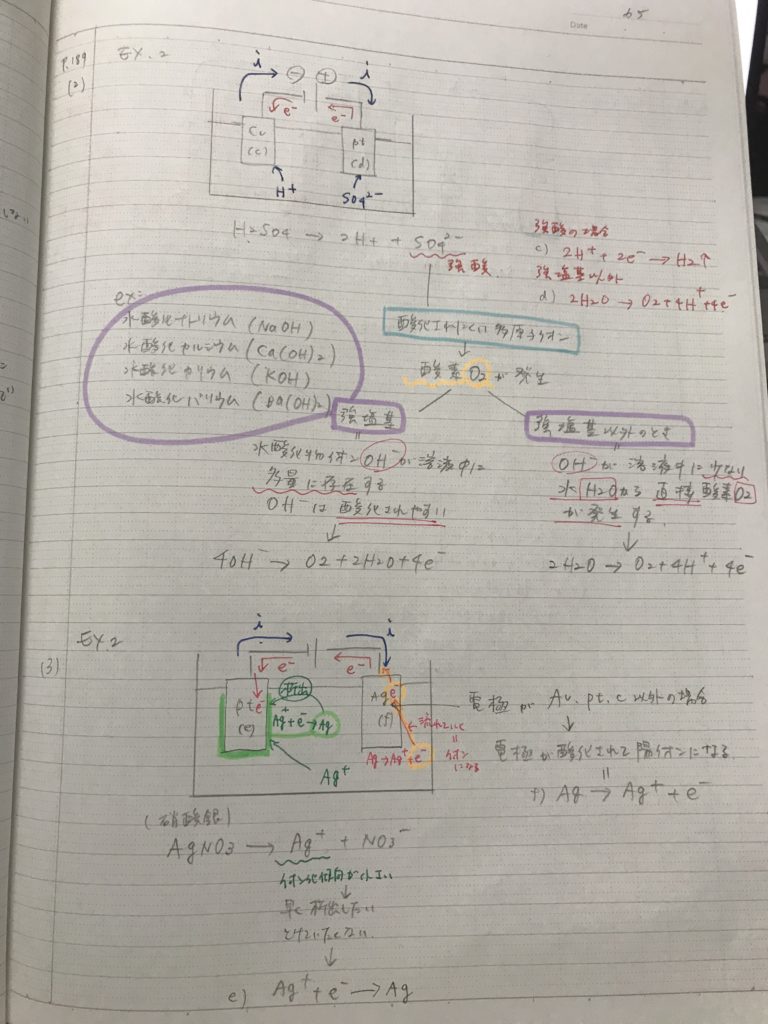 Date 65
P.189
(2)
EX.2
i ⊖ ⊕ i
e⁻ e⁻
Cu
(c)
pt
(d)
H⁺
SO4²⁻
H2SO4 → 2H+ + SO4²⁻
強酸
強酸の場合
c) 2H⁺ + 2e⁻ → H2↑
強塩基以外
d) 2H2O → O2+4H⁺+4e⁻
ex:
水酸化ナトリウム (NaOH)
水酸化カルシウム (Ca(OH)2)
水酸化カリウム (KOH)
水酸化バリウム (Ba(OH)2)
酸化されにくい多原子イオン
↓
酸素O2が発生
強塩基
=
水酸化物イオンOH⁻が溶液中に
多量に存在する
OH⁻は酸化されやすい
↓
4OH⁻ → O2+2H2O+4e⁻
強塩基以外のとき
=
OH⁻が溶液中に少ない
水H2Oから直接酸素O2
が発生する
↓
2H2O → O2+4H⁺+4e⁻
EX.2
(3)
i i
e⁻ e⁻
pt e⁻
(e)
析出
Ag⁺+e⁻→Ag
Ag⁺
Ag e⁻
(f)
Ag→Ag⁺+e⁻
流れていく
=
イオン
になる
電極が Au, pt, c 以外の場合
↓
電極が酸化されて陽イオンになる
=
f) Ag → Ag⁺ + e⁻
(硝酸銀)
AgNO3 → Ag⁺ + NO3⁻
イオン化傾向が小さい
↓
早く析出したい
とけていたくない
↓
e) Ag⁺+e⁻ → Ag